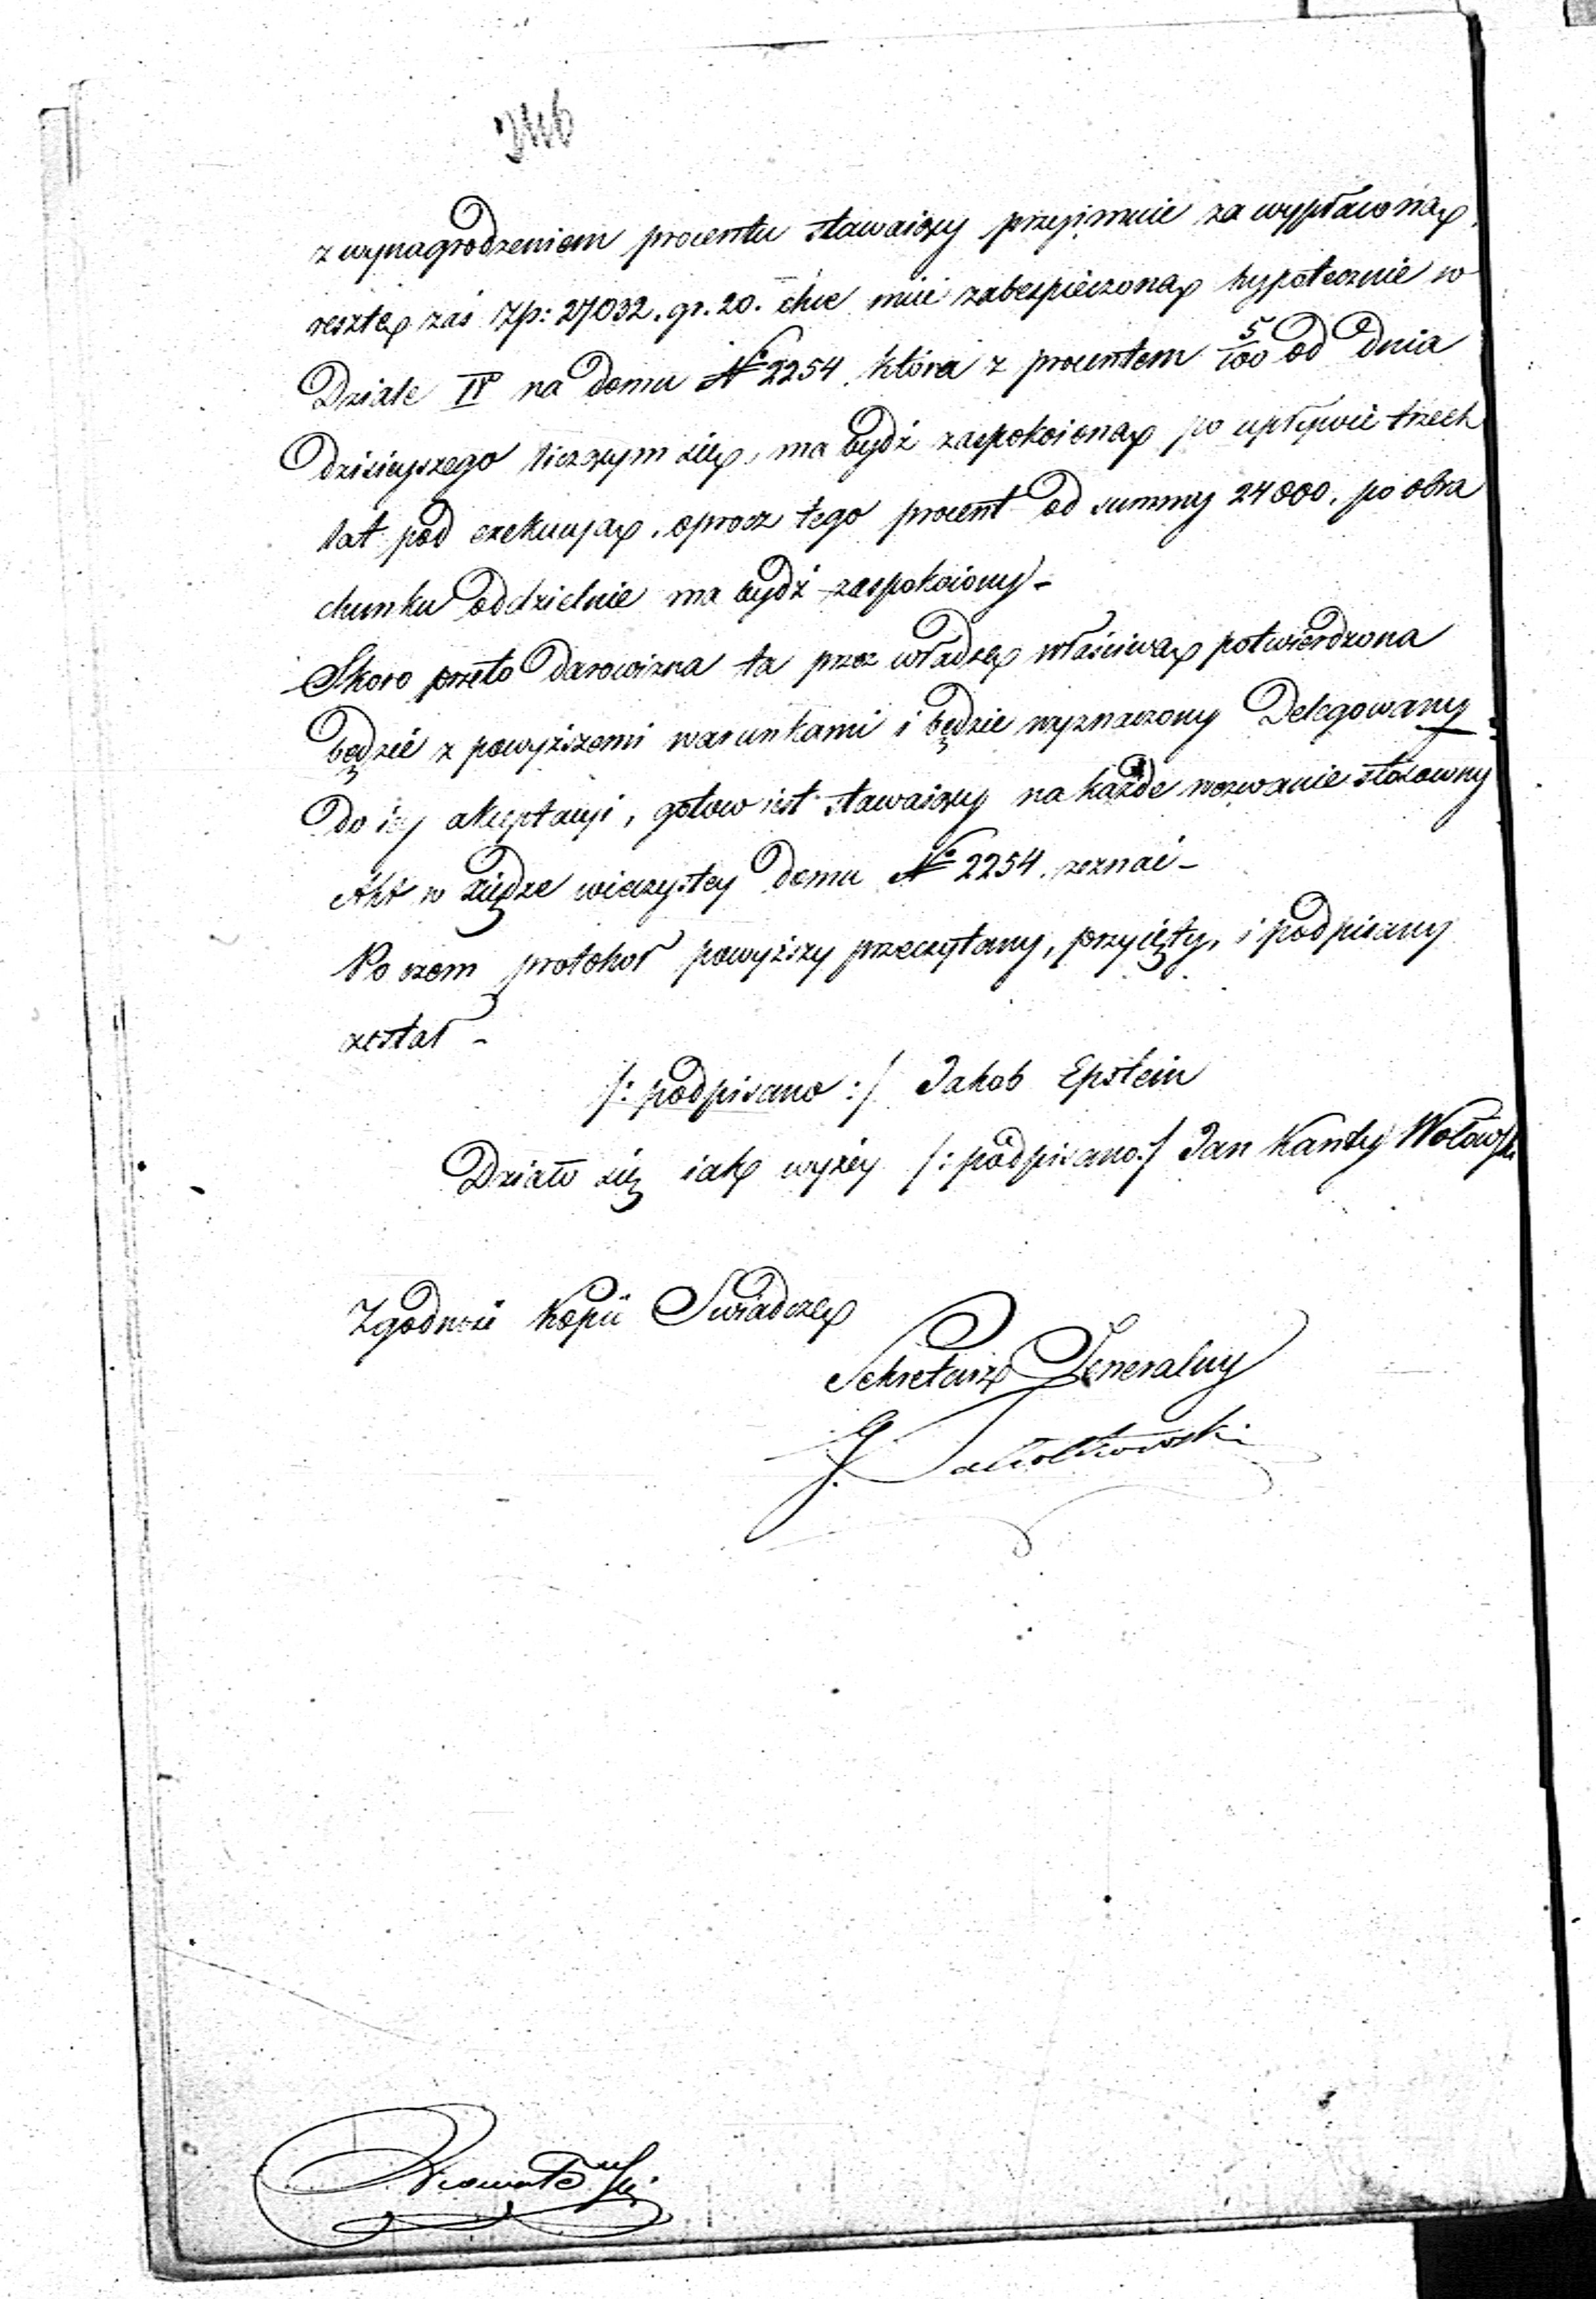 z wynagrodzeniem procentu stawaiący przyimuie za wypłaconą,
resztę zaś Zp: 27032. gr. 20. chce mieć zabespieczoną hypotecznie w
Dziale IV na domu № 2254. która z procentem 5/100 od dnia
dzisieyszego liczącym się, ma bydź zaspokoioną po upływie trzech
lat pod exekucyą, oprocz tego procent od summy 24000. po obra
chunku oddzielnie ma bydź zaspokoiony -
Skoro przeto Darowizna ta przez władzę właściwą potwierdzona
będzie z powyższemi warunkami i będzie wyznaczony Delegowany
do iey akceptacyi, gotow iest stawaiący na każde wezwanie stosowny
Akt w księdze wieczystey domu № 2254. zeznać -
Po czem protokoł powyższy przeczytany, przyięty, i podpisany
został -
/: podpisano :/ Jakob Epstein
Działo się iak wyżey /: podpisano :/ Jan Kanty Wołowski
Zgodność Kopii Swiadczę
Sekretarz Jeneralny
J.